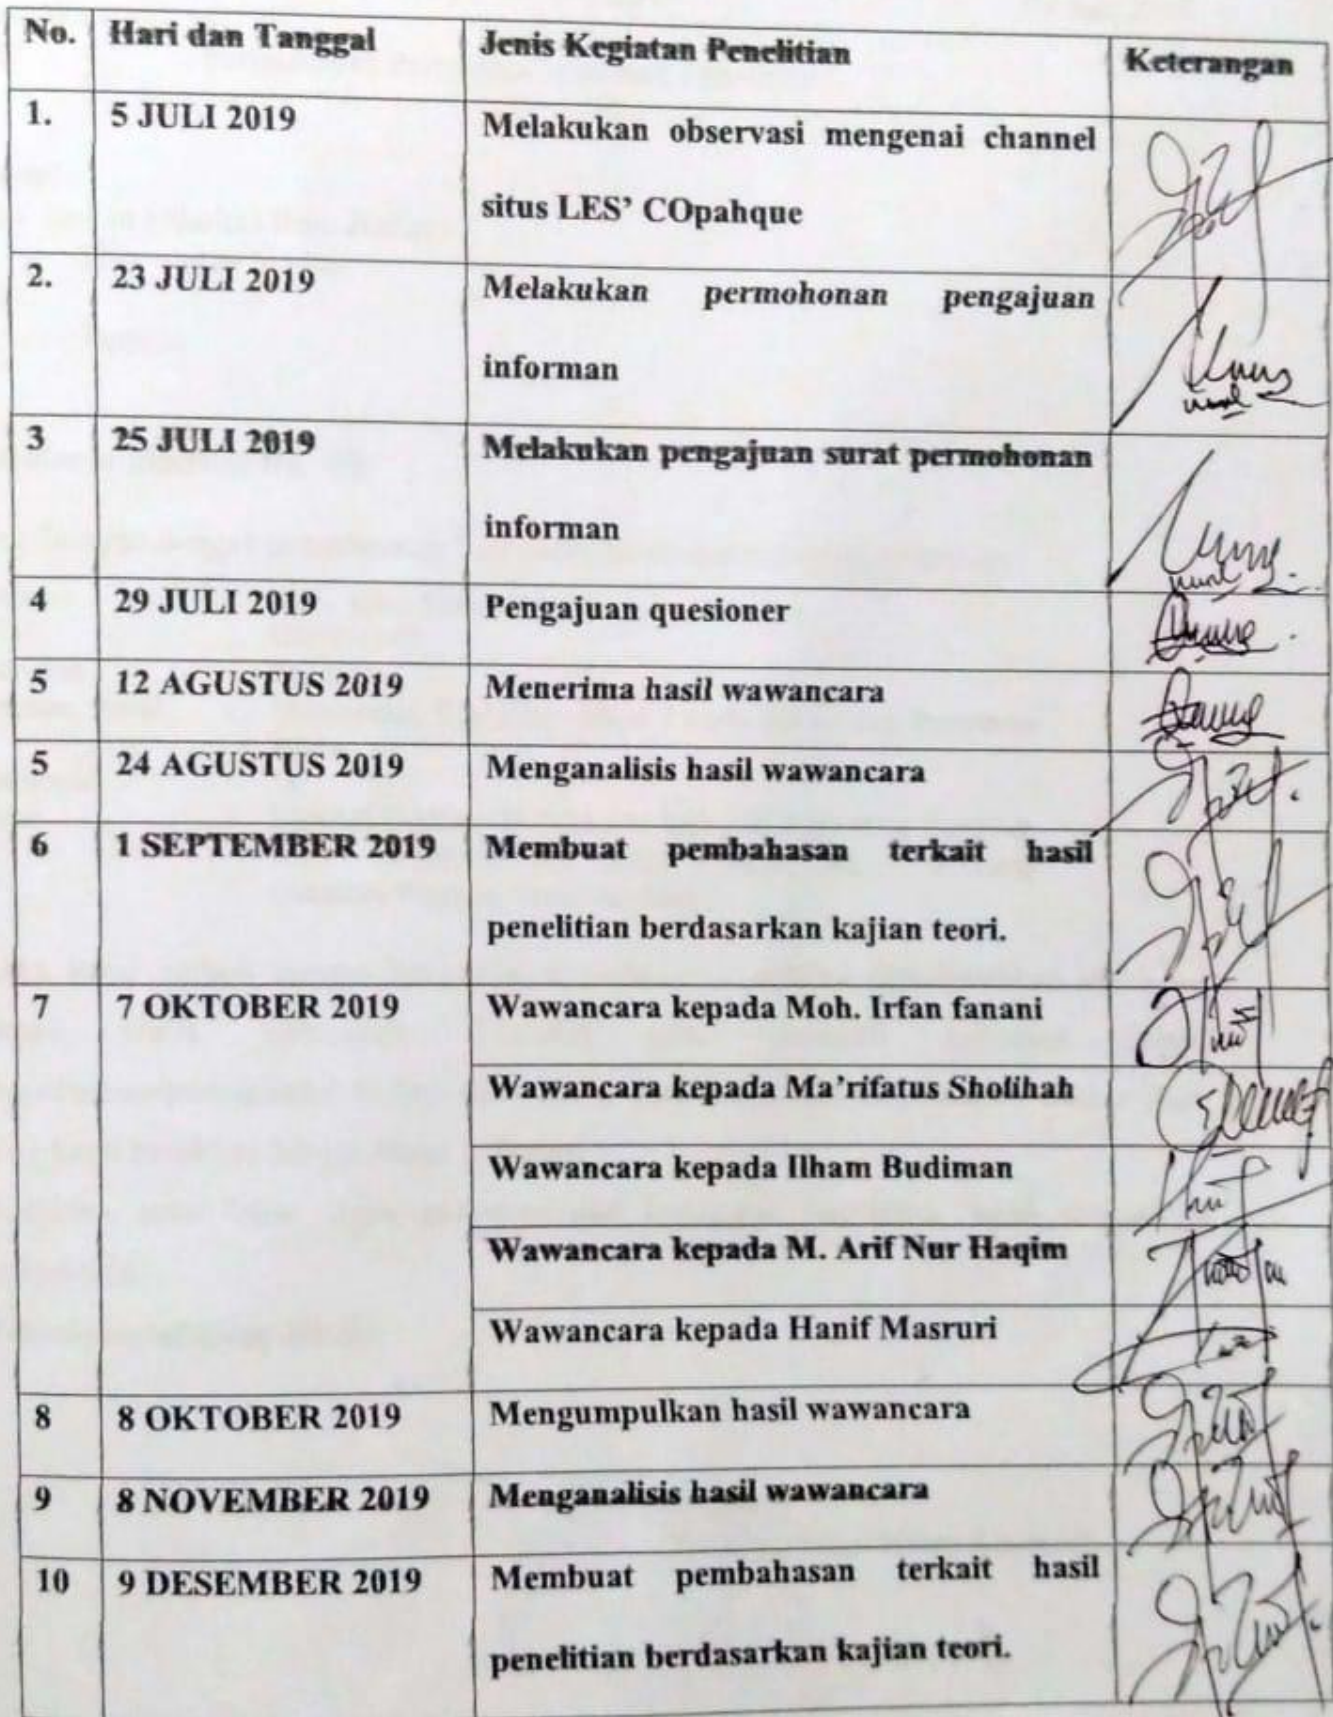 No. Hari dan Tanggal Jenis Kegiatan Penelitian Keterangan
1. 5 JULI 2019 Melakukan observasi mengenai channel
situs LES’ COpahque
2. 23 JULI 2019 Melakukan permohonan pengajuan
informan
3 25 JULI 2019 Melakukan pengajuan surat permohonan
informan
4 29 JULI 2019 Pengajuan quesioner
5 12 AGUSTUS 2019 Menerima hasil wawancara
5 24 AGUSTUS 2019 Menganalisis hasil wawancara
6 1 SEPTEMBER 2019 Membuat pembahasan terkait hasil
penelitian berdasarkan kajian teori.
7 7 OKTOBER 2019 Wawancara kepada Moh. Irfan fanani
Wawancara kepada Ma’rifatus Sholihah
Wawancara kepada Ilham Budiman
Wawancara kepada M. Arif Nur Haqim
Wawancara kepada Hanif Masruri
8 8 OKTOBER 2019 Mengumpulkan hasil wawancara
9 8 NOVEMBER 2019 Menganalisis hasil wawancara
10 9 DESEMBER 2019 Membuat pembahasan terkait hasil
penelitian berdasarkan kajian teori.